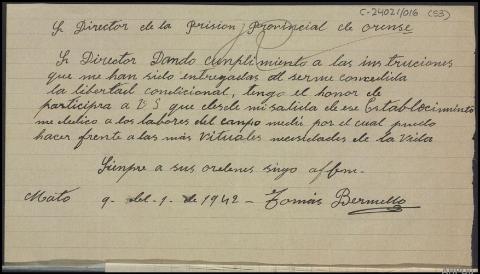 C-24021/016 (53)
Sr Director de la Prision Provincial de Orense
Sr Director Dando cumplimiento a las instruciones
que me han sido entregadas al serme concedida
la libertad condicional, tengo el honor de
participra a V S que desde mi salida de ese Establecimiento
me dedico a los labores del campo por el cual puedo
hacer frente a las más vituales necesidades de la Vida
Siempre a sus ordenes sigo affm.
Mato 9 del-1-de 1942 - Tomás Bermello